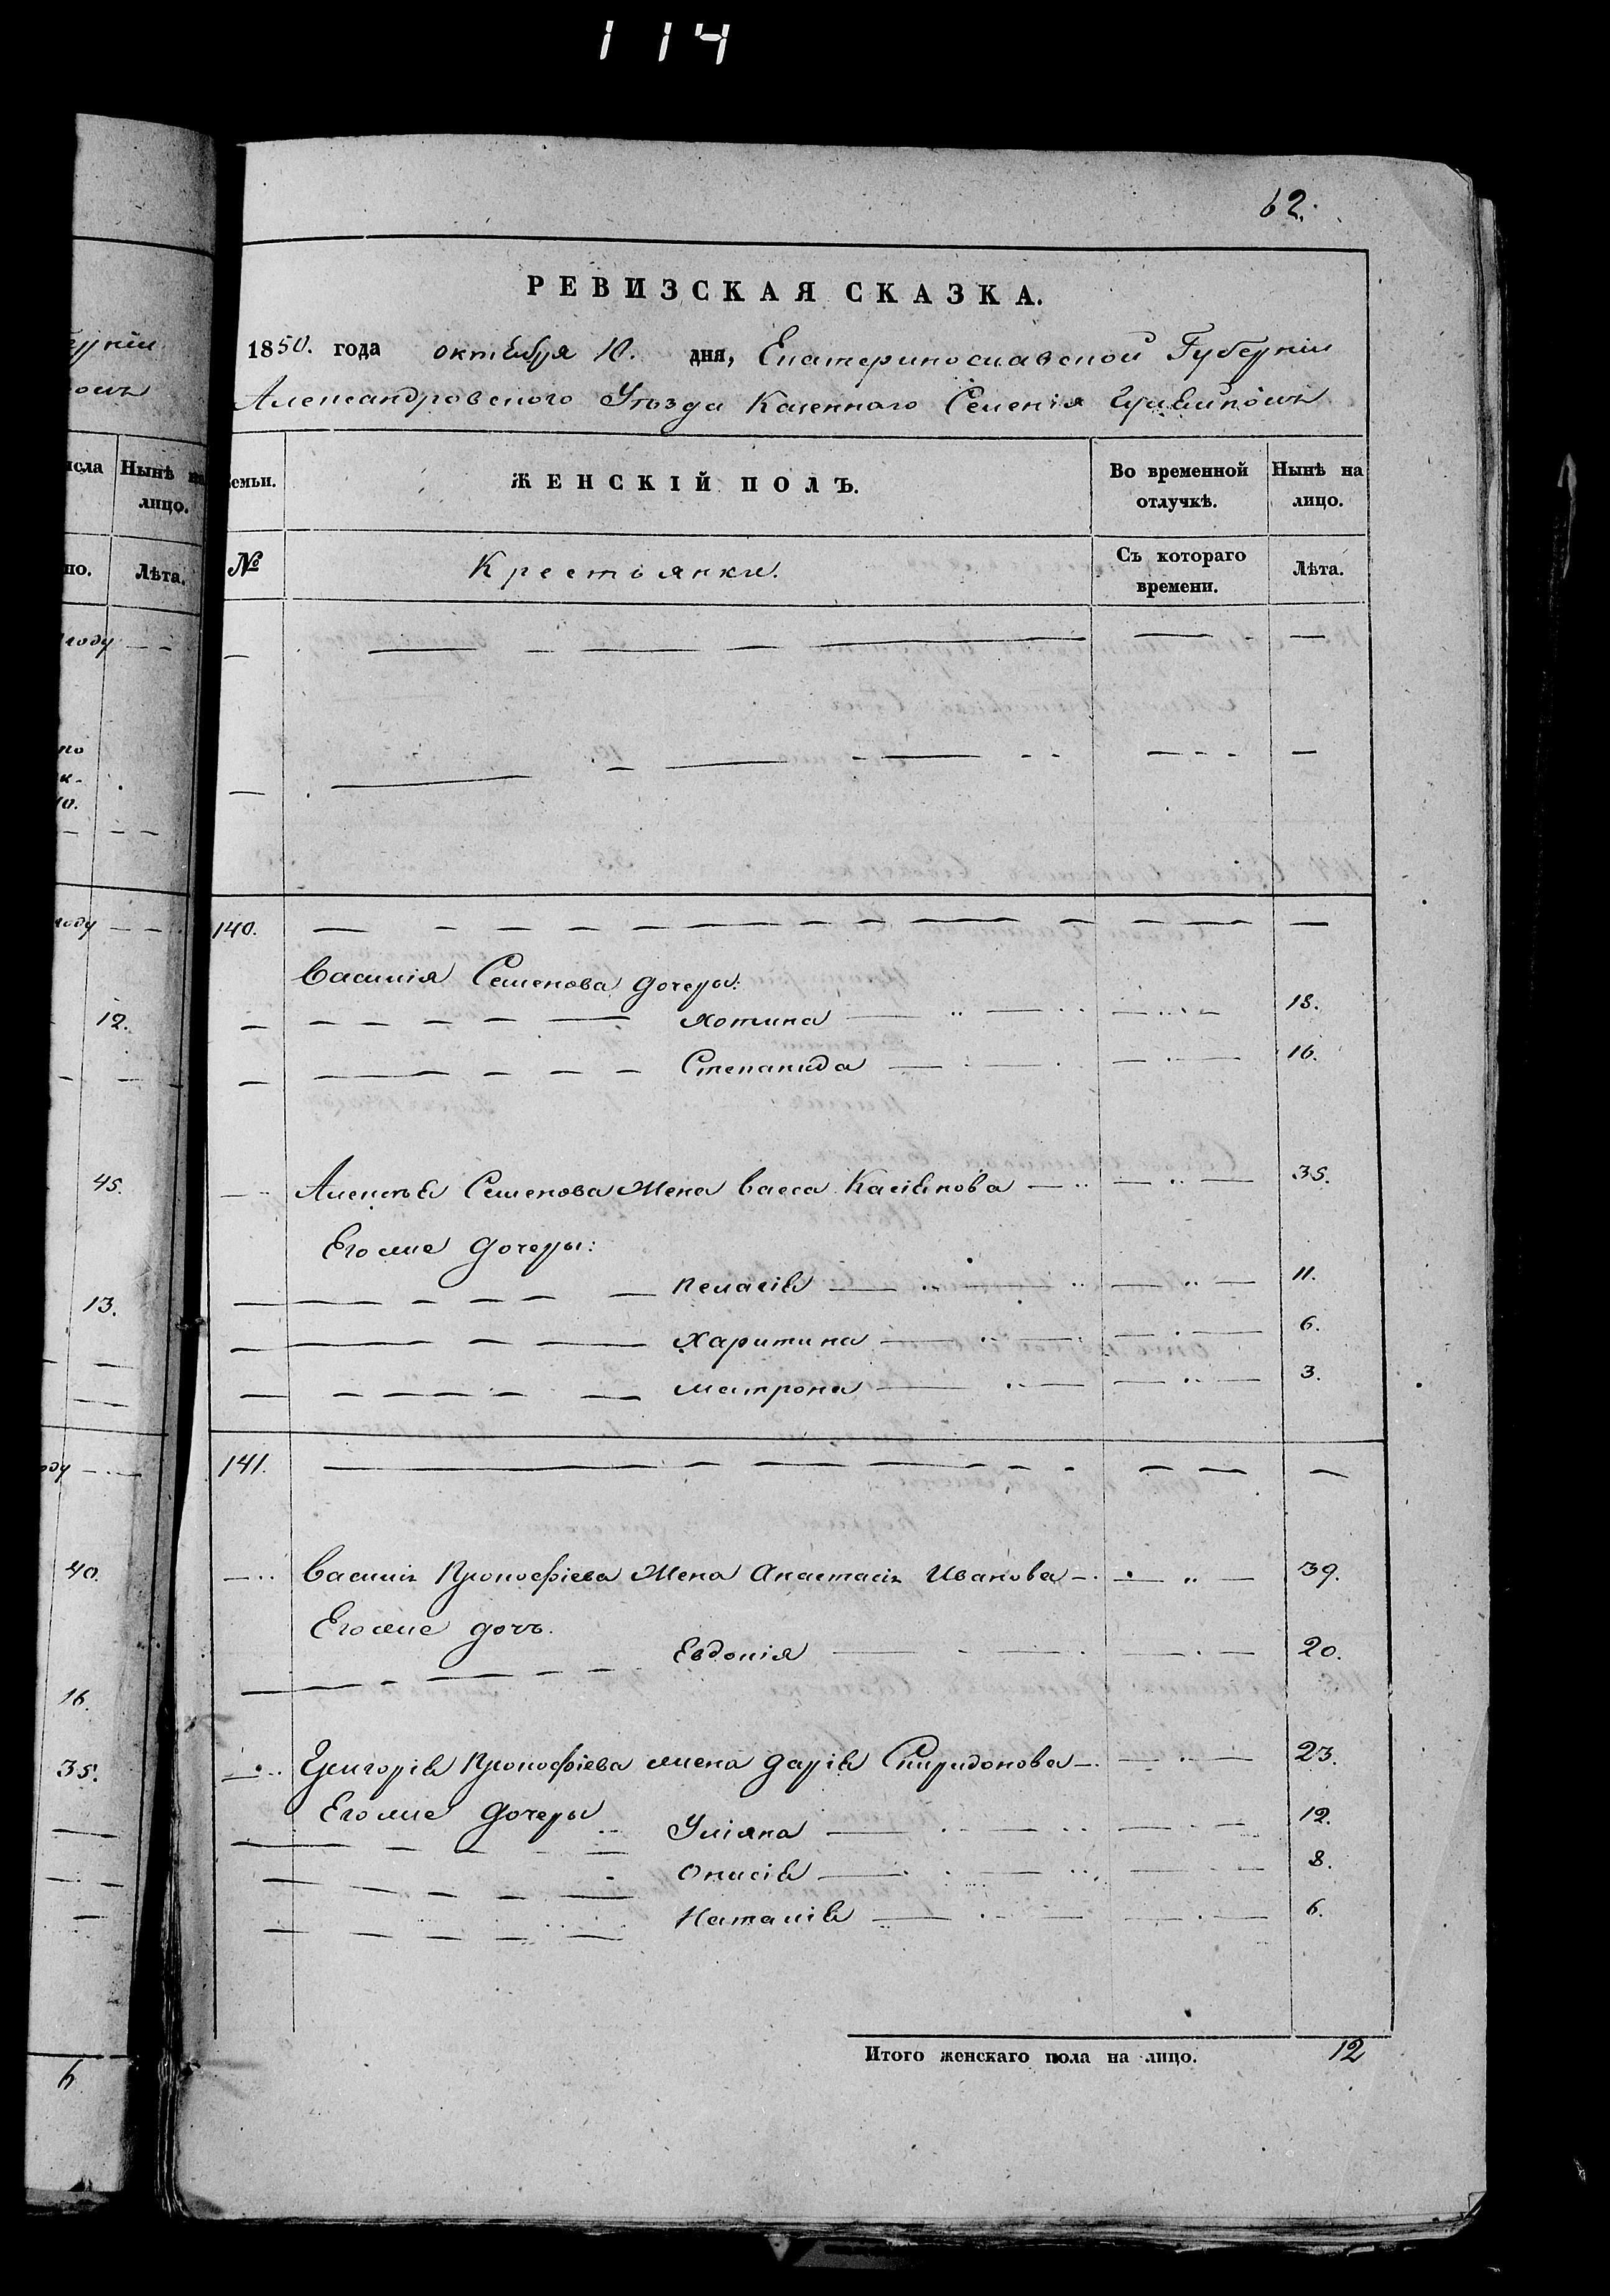 114
62.
РЕВИЗСКАЯ СКАЗКА.
1850. года октября 10. дня, Екатеринославской Губерніи
Александровского Уѣзда Казенного Селенія
исла Нынѣ на лицо.
но. Лѣта.
году
12.
45.
13.
40.
16.
35.
6
семьи. ЖЕНСКІЙ ПОЛЪ. Во временной отлучкѣ. Нынѣ на лицо.
№ Крестьянки. Съ котораго времени. Лѣта.
140.
Василія Семенова дочеры:
Хотина 18.
Степанида 16.
Алексѣя Семенова жена Васса Касіянова 35.
Его же дочеры:
Пелагія 11.
Харитина 6.
Матрона 3.
141.
Василія Прокофіева жена Анастасія Иванова 39.
Его же дочь.
Евдокія 20.
Григорія Прокофіева жена Дарія Спиридонова 23.
Его же дочеры
Уліяна 12.
Онисія 8.
Наталія 6.
Итого женскаго пола на лицо. 12